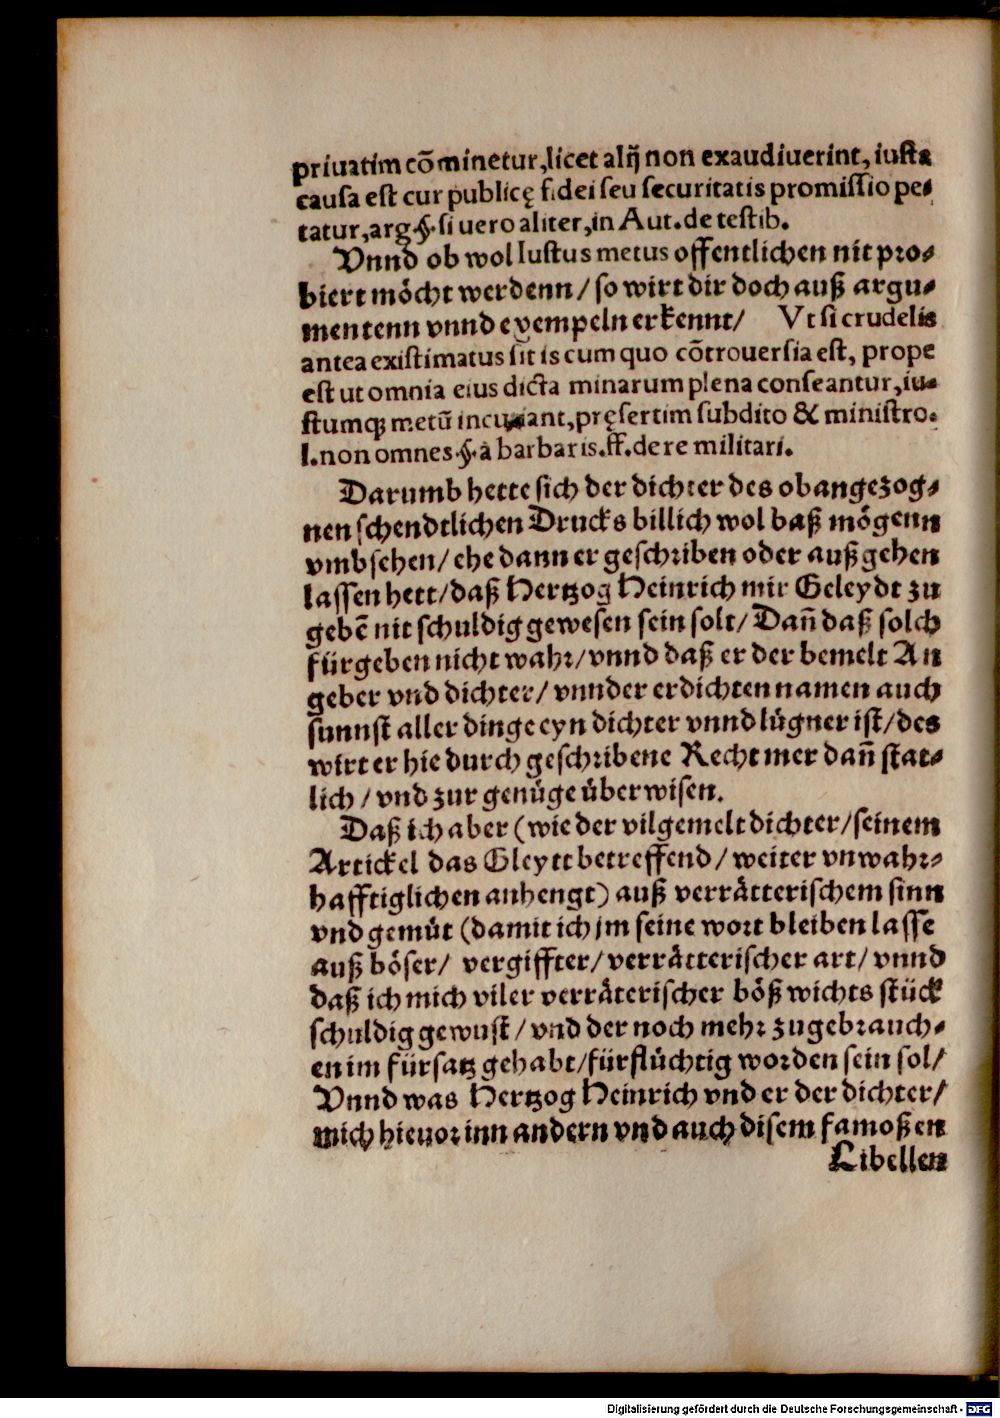 priuatim cõminetur, licet alij non exaudiuerint, iusta
causa est cur publicę fidei seu securitatis promissio pe⸗
tatur, arg. §. si uero aliter, in Aut. de testib.
Vnnd ob wol Iustus metus offentlichen nit pro⸗
biert möcht werdenn / so wirt dir doch auß argu⸗
mentenn vnnd exempeln erkennt / Vt si crudelis
antea existimatus sit is cum quo cõtrouersia est, prope
est ut omnia eius dicta minarum plena conseantur, iu⸗
stumq; metũ incutiant, pręsertim subdito & ministro.
l. non omnes. §. à barbaris. ff. de re militari.
Darumb hette sich der dichter des obangezog⸗
nen schendtlichen Drucks billich wol baß mögenn
vmbsehen / ehe dann er geschriben oder außgehen
lassen hett / daß Hertzog Heinrich mir Geleydt zu
gebẽ nit schuldig gewesen sein solt / Dañ daß solch
fürgeben nicht wahr / vnnd daß er der bemelt An
geber vnd dichter / vnnder erdichten namen auch
sunnst aller dinge eyn dichter vnnd lügner ist / des
wirt er hie durch geschribene Recht mer dañ stat⸗
lich / vnd zur genüge überwisen.
Daß ich aber (wie der vilgemelt dichter / seinem
Artickel das Gleytt betreffend / weiter vnwahr⸗
hafftiglichen anhengt) auß verrätterischem sinn
vnd gemüt (damit ich jm seine wort bleiben lasse
auß böser / vergiffter / verrätterischer art / vnnd
daß ich mich viler verräterischer bößwichts stück
schuldig gewust / vnd der noch mehr zugebrauch⸗
en im fürsatz gehabt / fürflüchtig worden sein sol /
Vnnd was Hertzog Heinrich vnd er der dichter /
mich hieuor inn andern vnd auch disem famoßen
Libellen
Digitalisierung gefördert durch die Deutsche Forschungsgemeinschaft - DFG